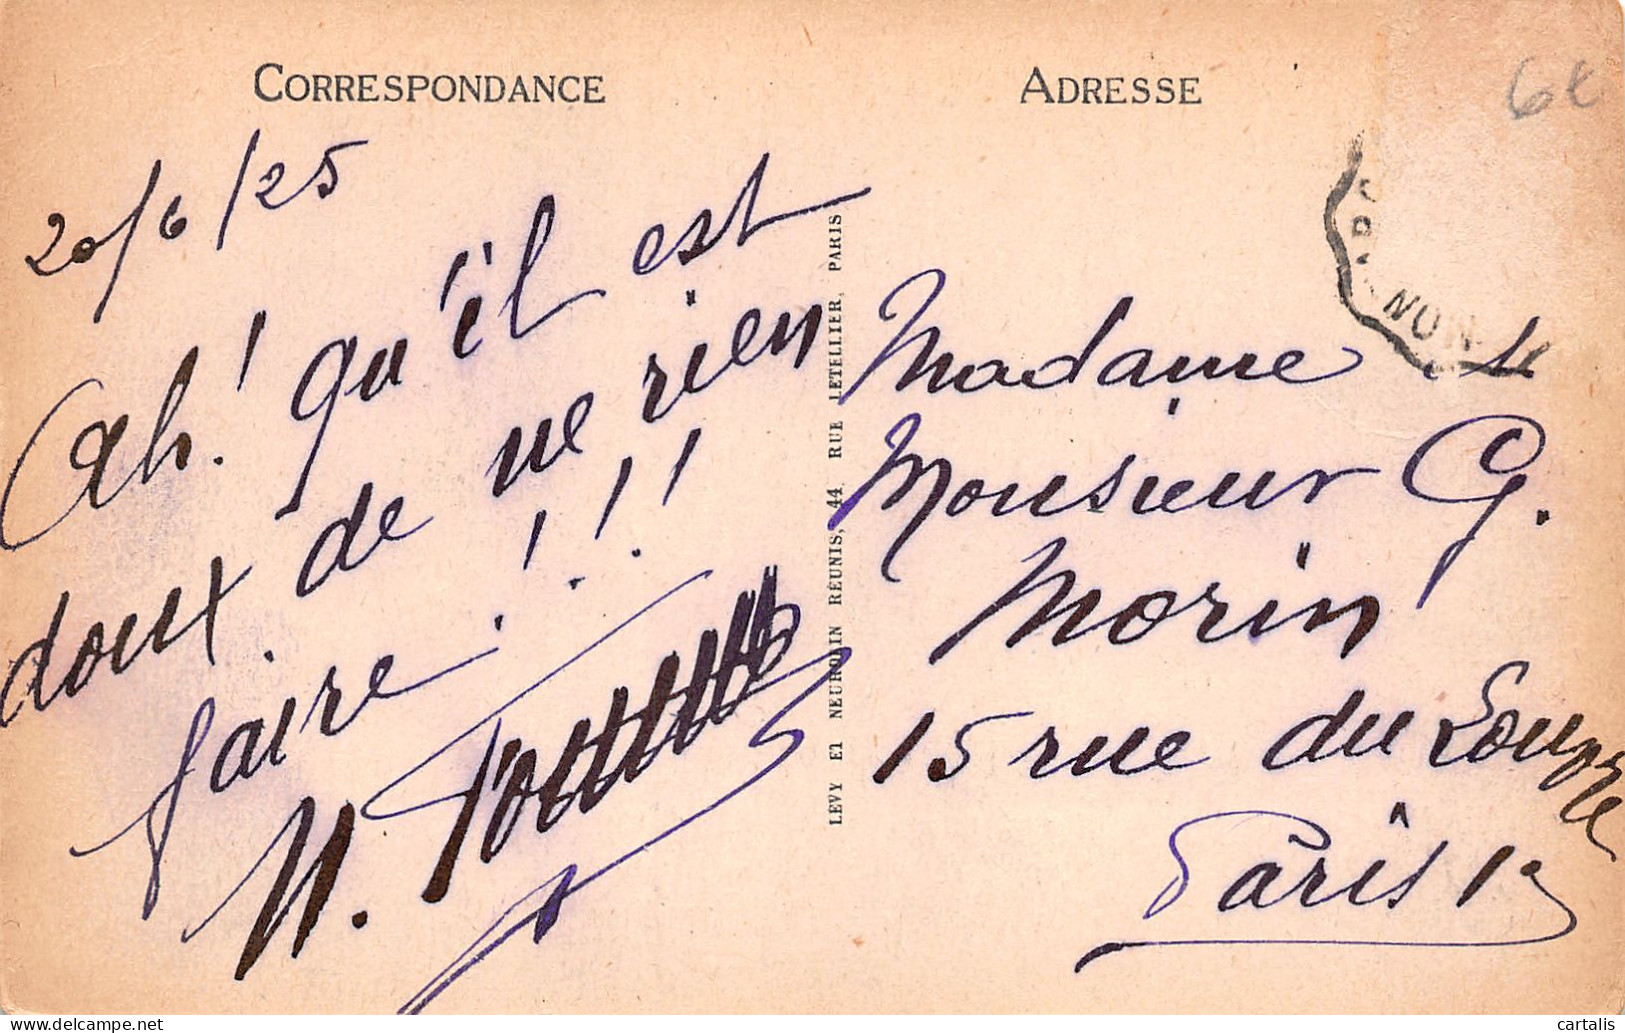 CORRESPONDANCE
20/6/25
Ah! qu'il est
doux de ne rien
faire!!!
LEVY ET NEURDEIN RÉUNIS, 44 RUE LETELLIER, PARIS
ADRESSE
6€
MON
Madame &
Monsieur G.
Morin
15 rue du Louvre
Paris 1er
delcampe.net
cartalis